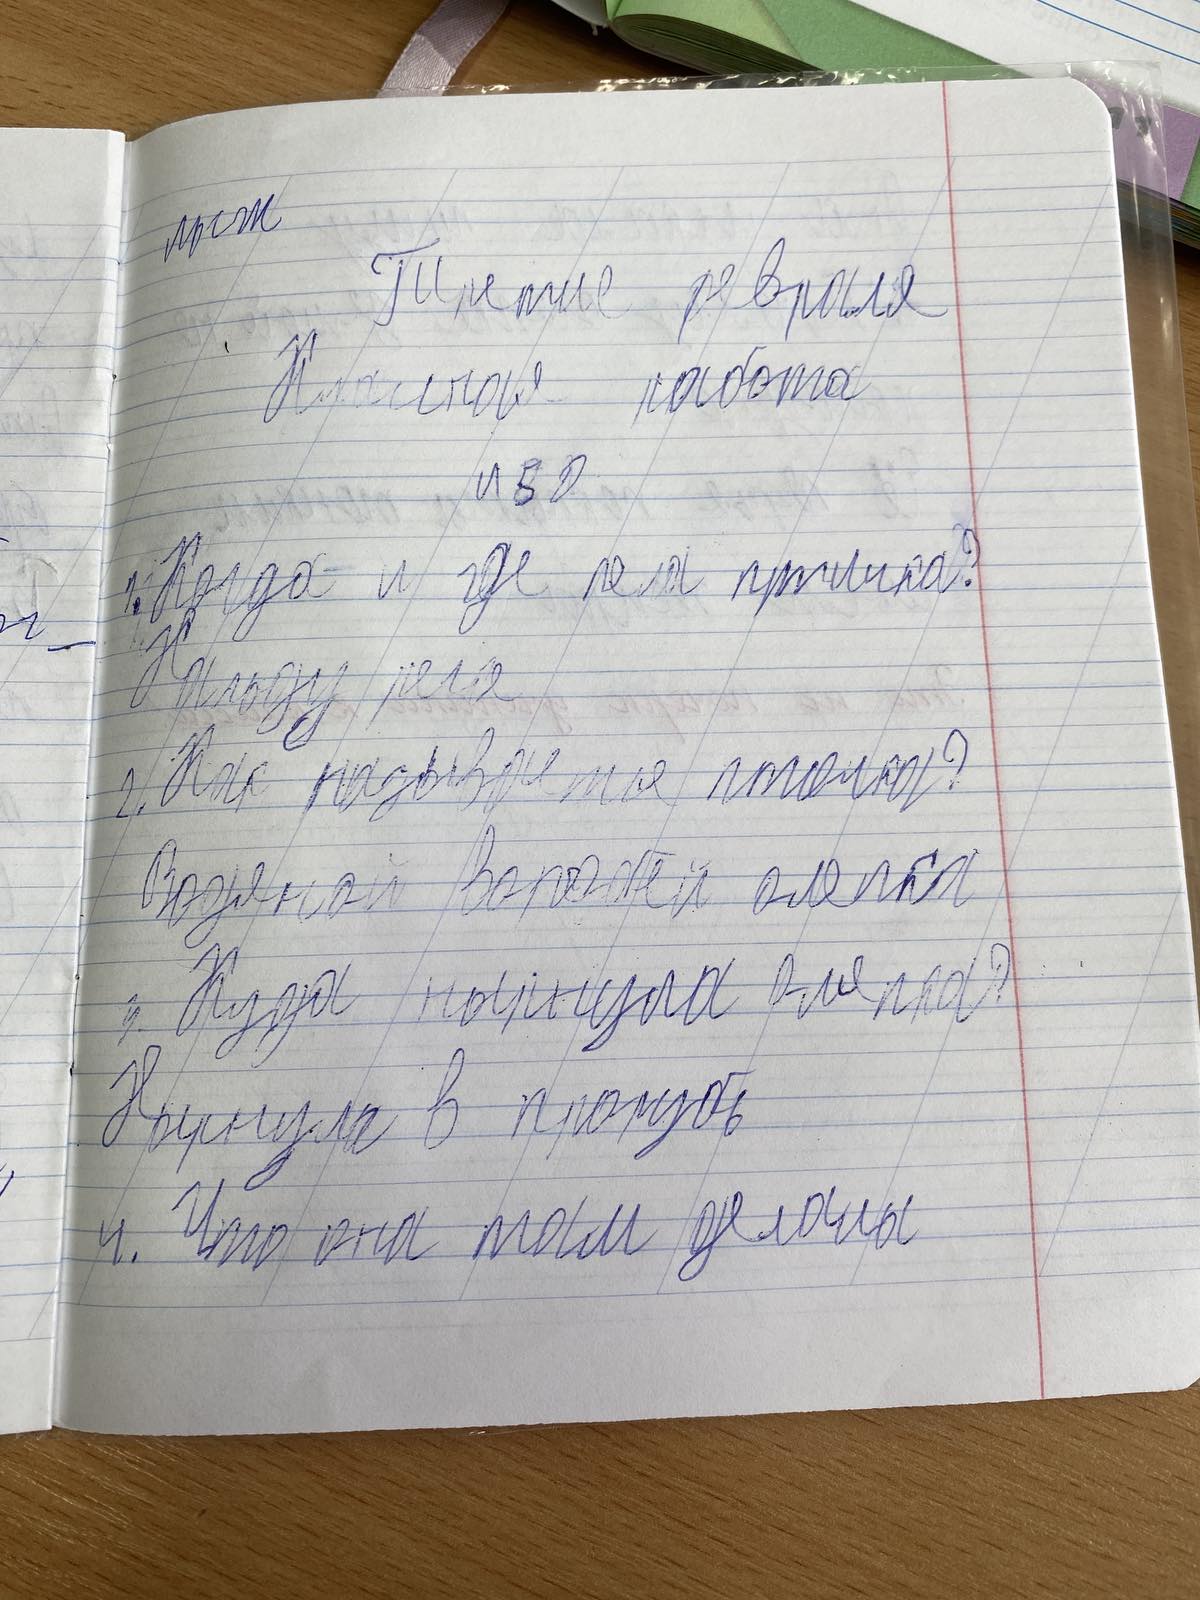 Третие февраля
Классная работа
1. Когда и где пела птичка?
На льду реля
2. Как называется птичка?
Водяной воробей оляпка
3. Куда нырнула оляпка?
Нырнула в прорубь
4. Что она там делала